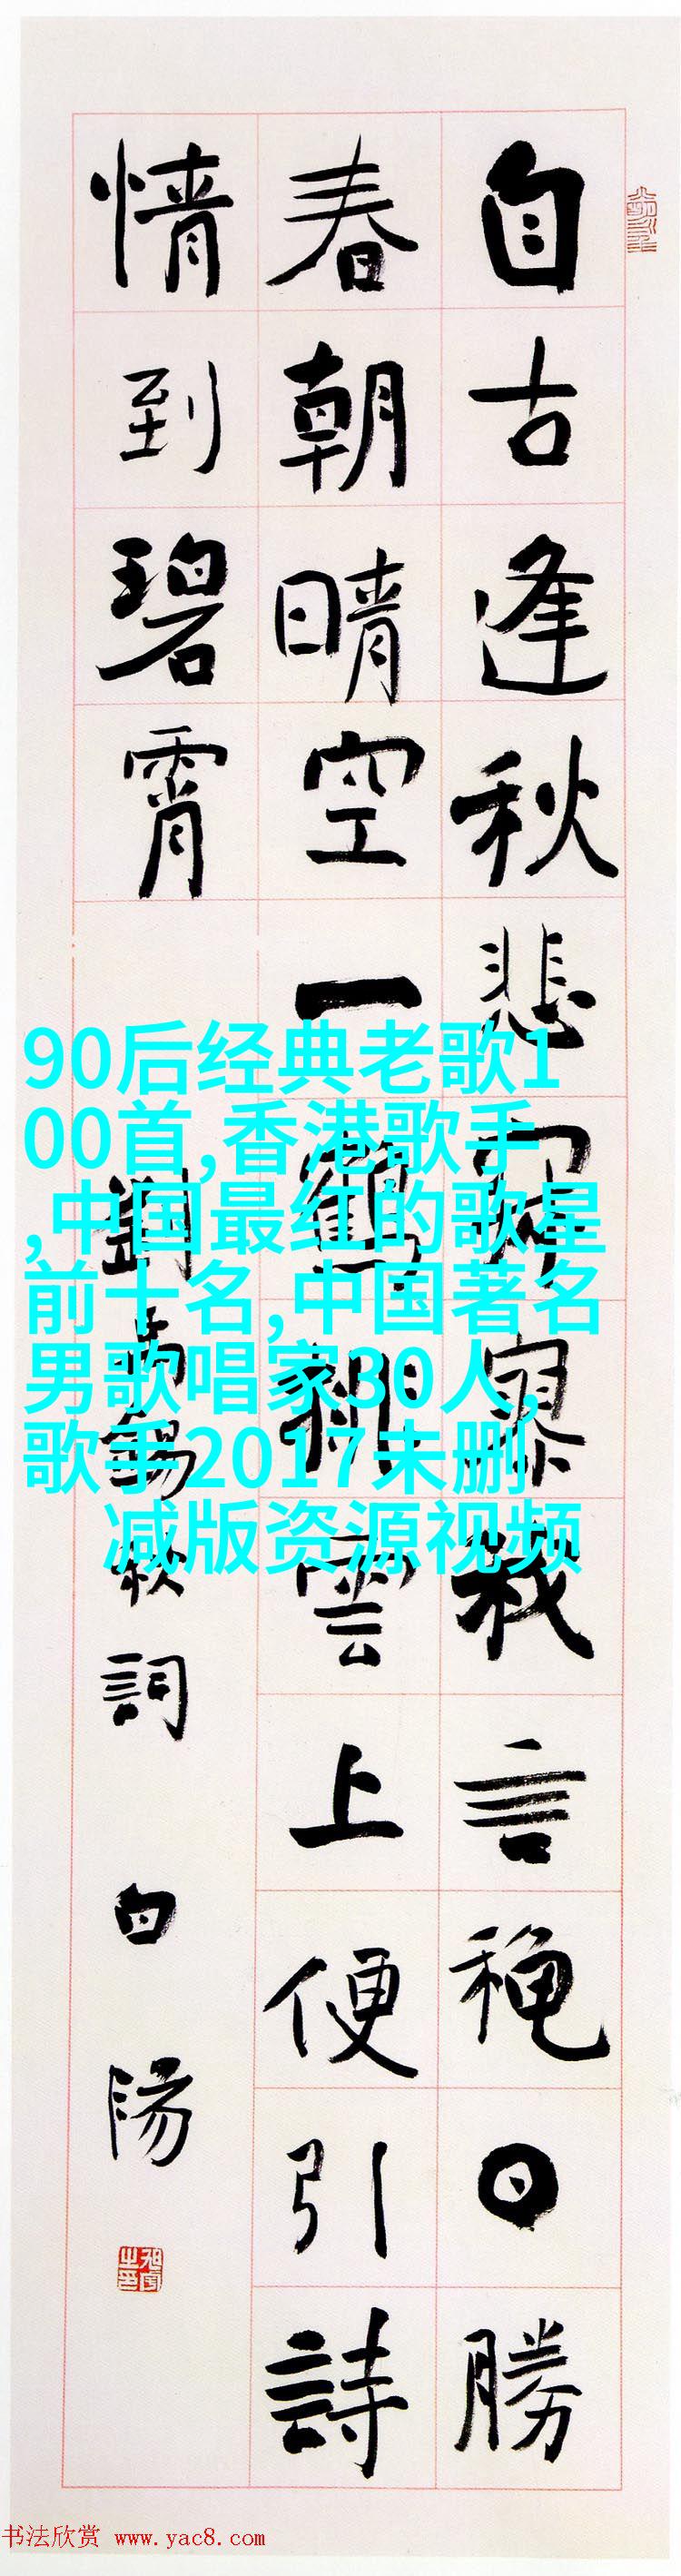 自古逢秋悲寂寥我言秋日勝
春朝晴空一鶴排雲上便引詩
情到碧霄
劉禹錫秋詞
白陽
90后经典老歌1
00首,香港歌手
,中国最红的歌星
前十名,中国著名
男歌唱家30人,
歌手2017未删
减版资源视频
书法欣赏 www.yac8.com